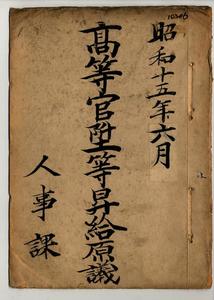 昭和十五年六月
高等官陞等昇給原議
人事課